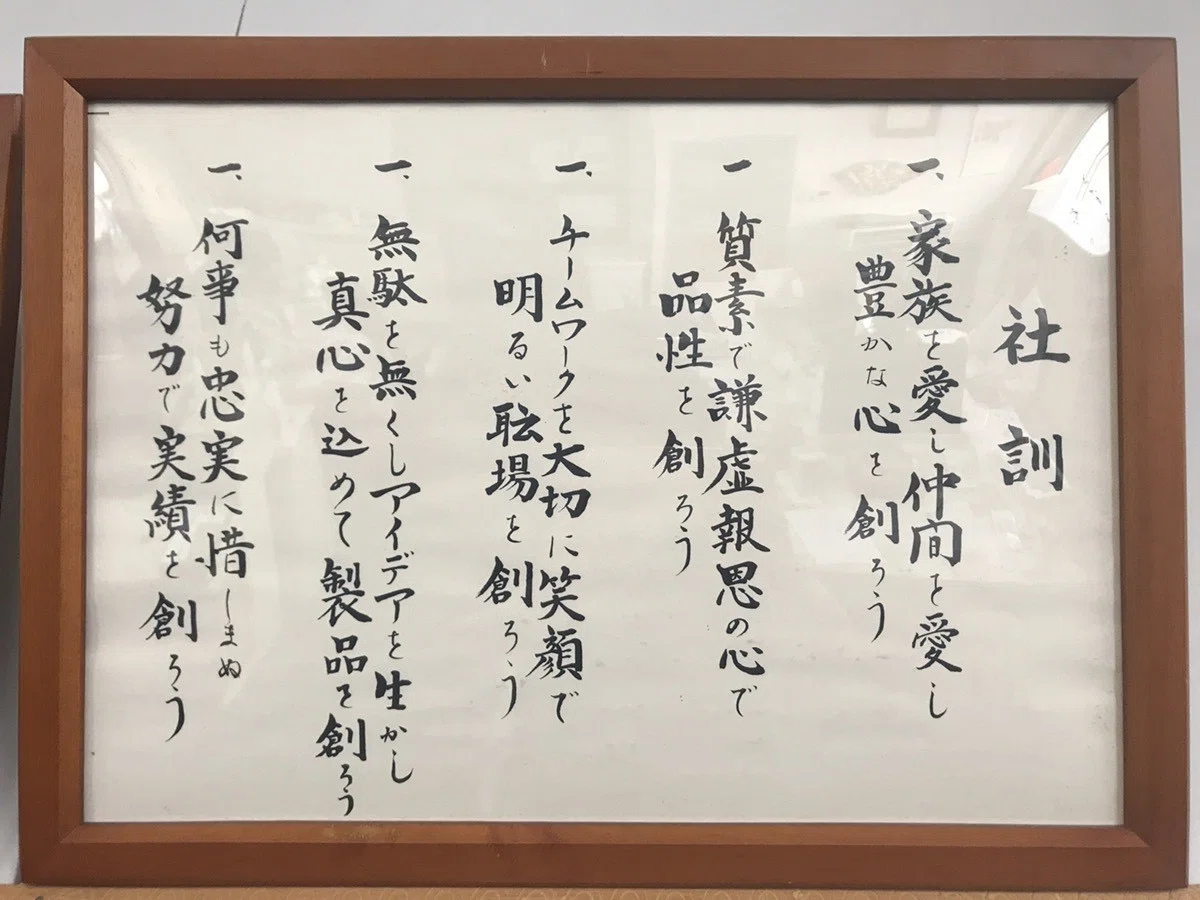 社訓
一、家族を愛し仲間を愛し
豊かな心を創ろう
一 質素で謙虚報恩の心で
品性を創ろう
一、チームワークを大切に笑顔で
明るい職場を創ろう
一、無駄を無くしアイデアを生かし
真心を込めて製品を創ろう
一、何事も忠実に惜しまぬ
努力で実績を創ろう